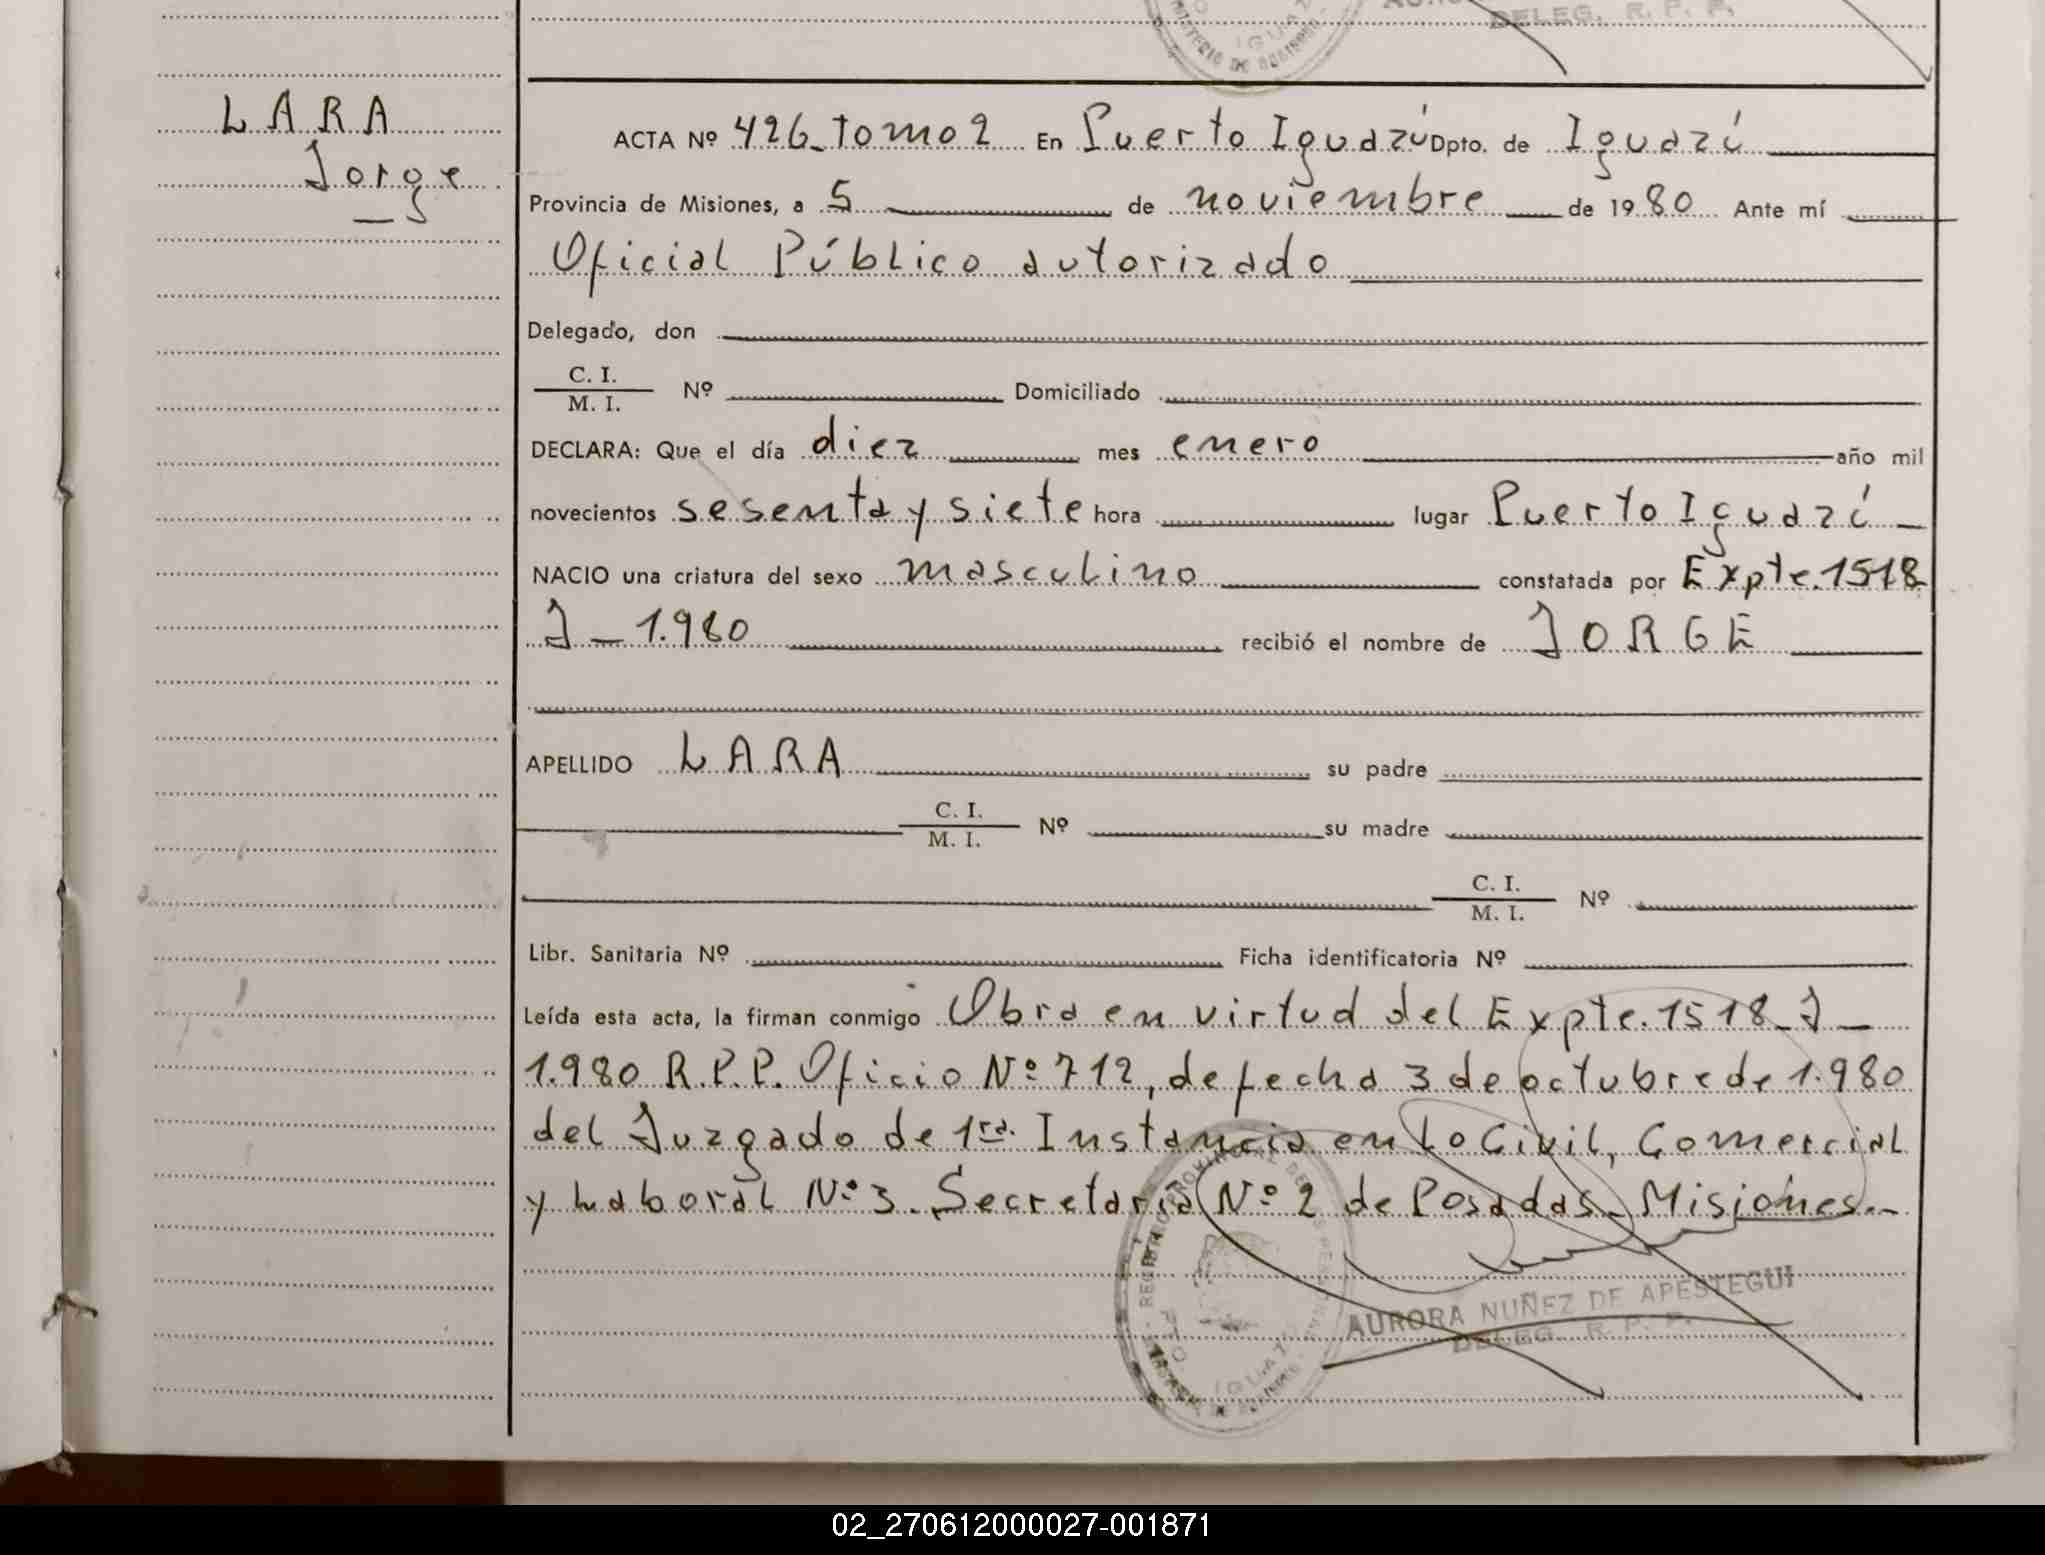 DELEG. R. P. P.
LARA
Jorge
ACTA Nº 426 Tomo 2 En Puerto Iguazú Dpto. de Iguazú
Provincia de Misiones, a 5 de noviembre de 1980 Ante mí
Oficial Público autorizado
Delegado, don
C. I.
M. I. Nº Domiciliado
DECLARA: Que el día diez mes enero año mil
novecientos sesenta y siete hora lugar Puerto Iguazú
NACIO una criatura del sexo masculino constatada por Expte. 1518
J - 1.980 recibió el nombre de JORGE
APELLIDO LARA su padre
C. I.
M. I. Nº su madre
C. I.
M. I. Nº
Libr. Sanitaria Nº Ficha identificatoria Nº
Leída esta acta, la firman conmigo Obra en virtud del Expte. 1518-J-
1.980 R.P.P. Oficio Nº 712, de fecha 3 de octubre de 1.980
del Juzgado de 1ra. Instancia en lo Civil, Comercial
y Laboral Nº 3. Secretaria Nº 2 de Posadas - Misiones.-
AURORA NUÑEZ DE APESTEGUI
DELEG. R. P. P.
02_270612000027-001871